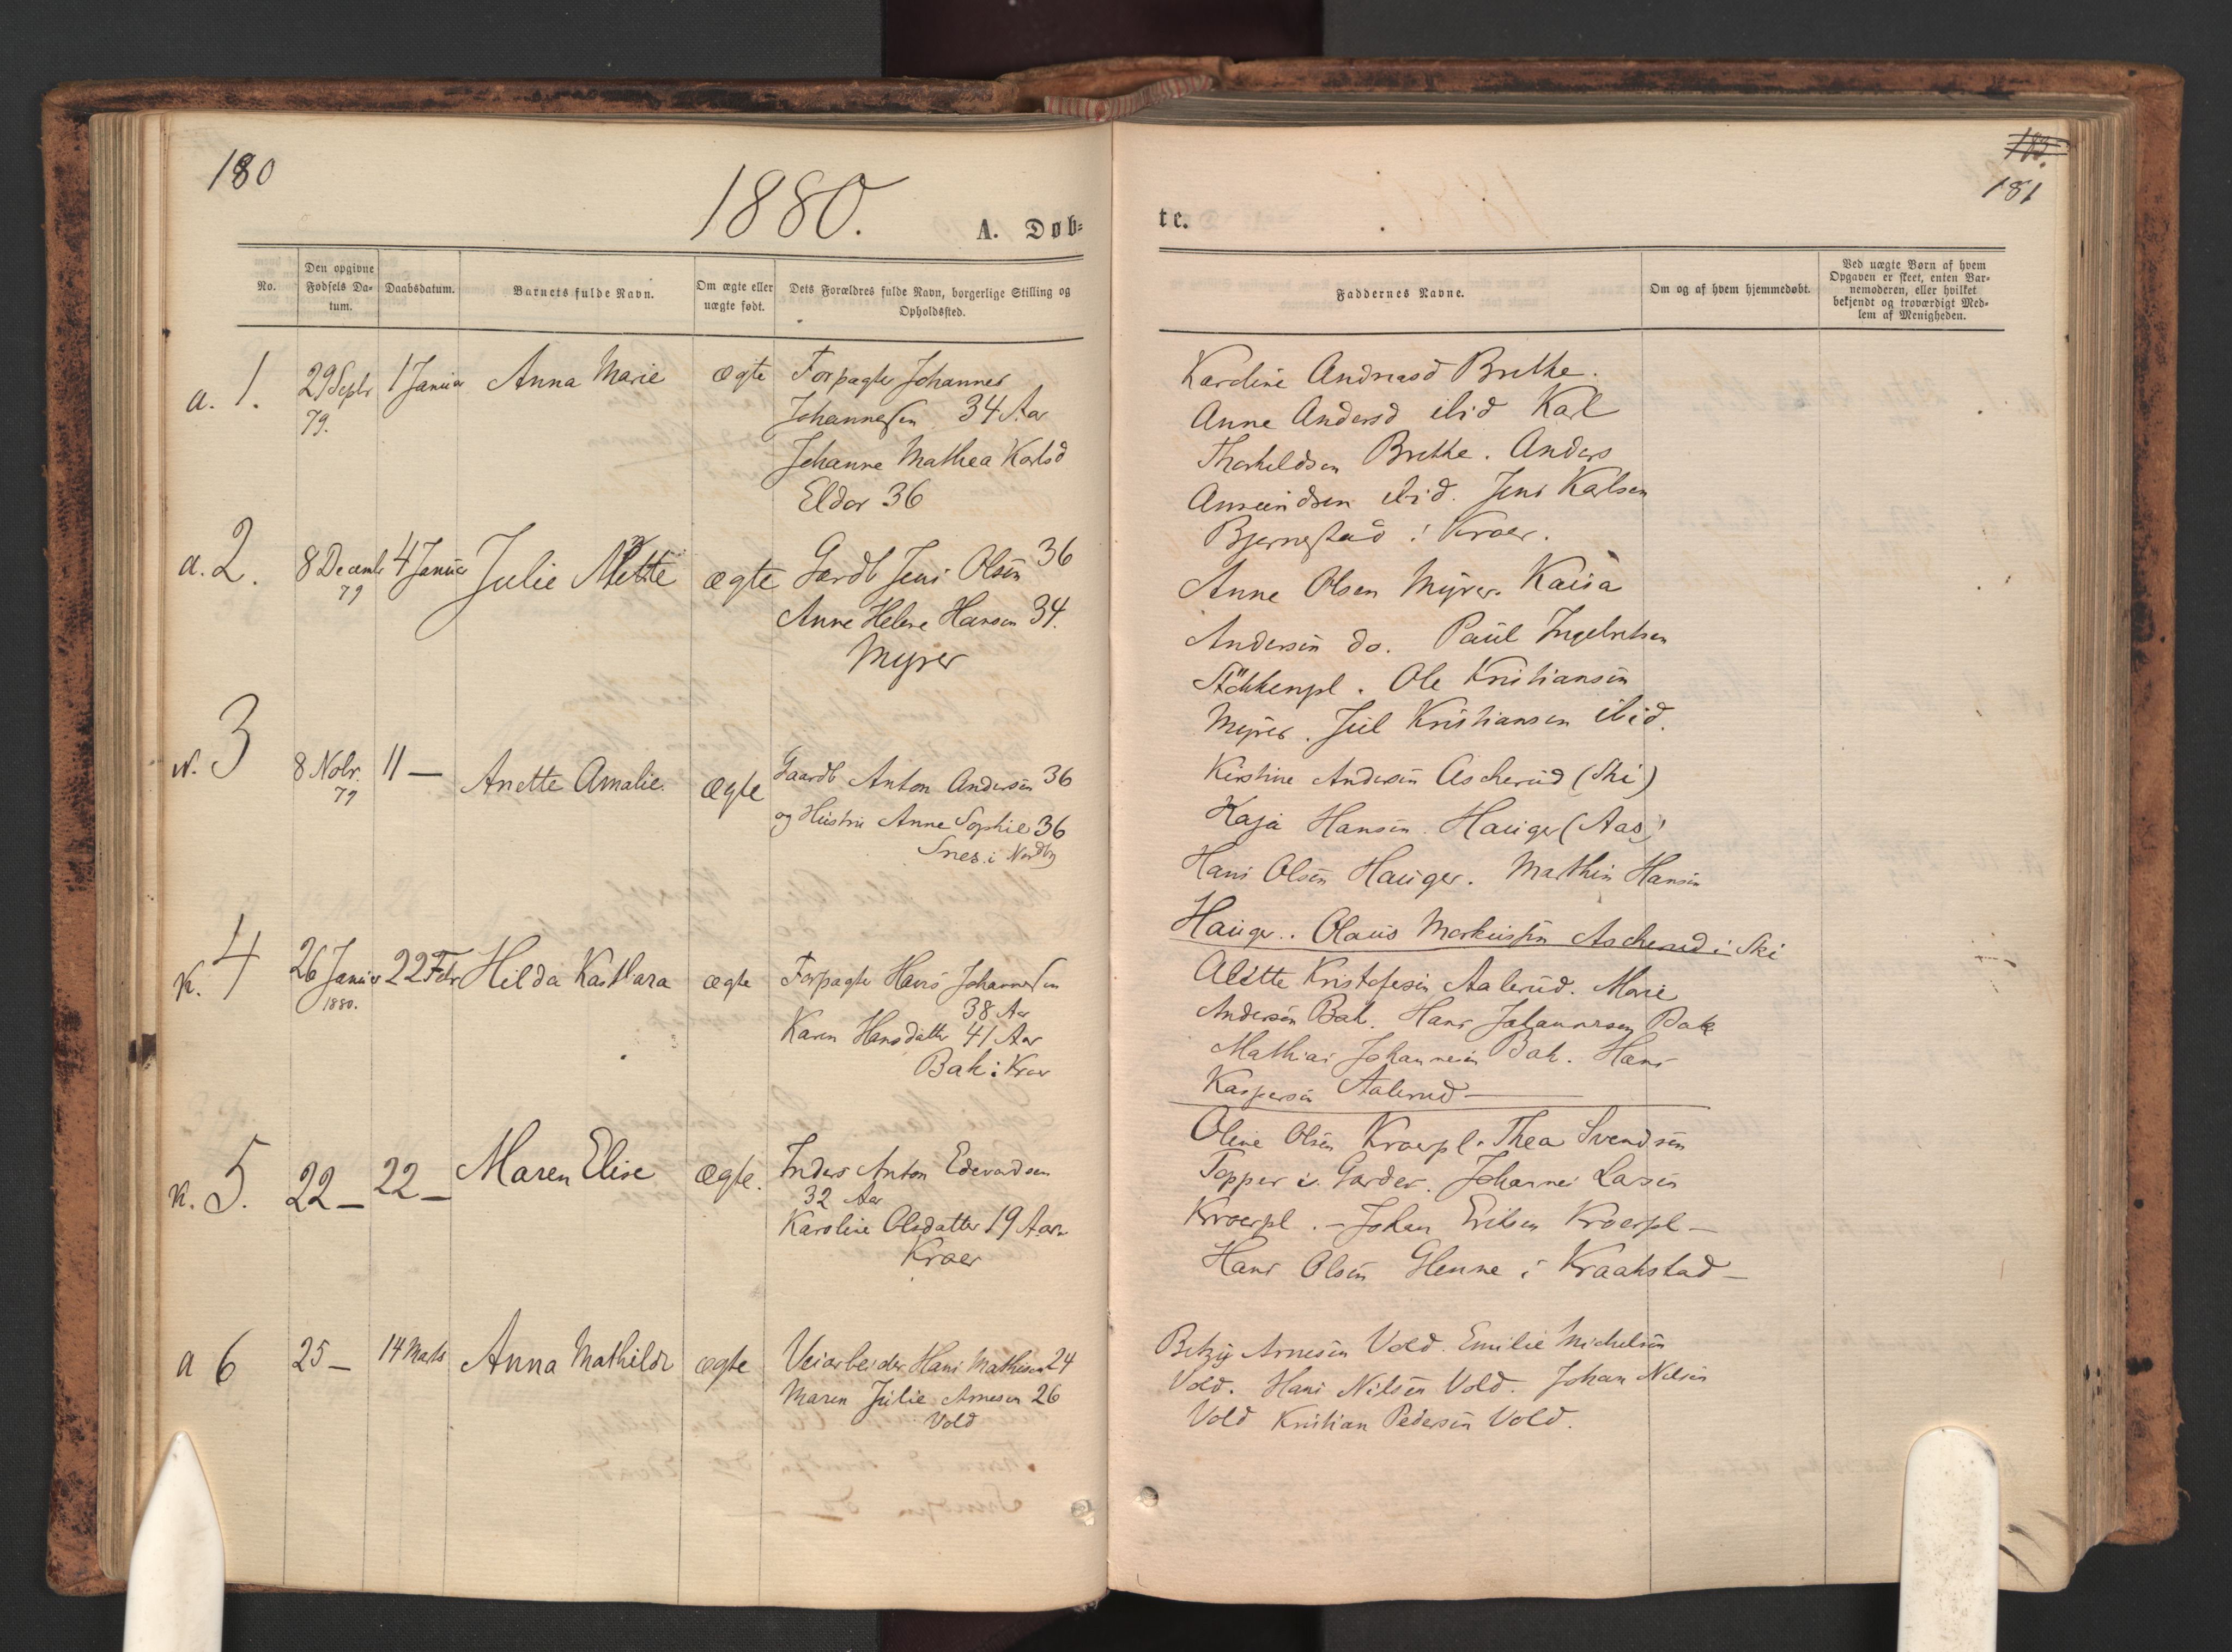 180
1880.
A. Døb=
No.
Den opgivne Fødsels Da-tum.
Daabsdatum.
Barnets fulde Navn.
Om ægte eller uægte født.
Dets Forældres fulde Navn, borgerlige Stilling og Opholdssted.
a. 1.
29 Septr 79.
1 Januar
Anna Marie
ægte
Forpagter Johannes
Johannessen 34 Aar
Johanne Mathea Karlsd
Eldor 36
a. 2.
8 Decemb 79
4 Januar
Julie Mette
ægte
Gardb Jens Olsen 36
Anne Helene Hansen 34.
Myrer
N. 3
8 Nobr. 79
11 —
Anette Amalie.
ægte
Gaardb Anton Andersen 36
og Hustru Anne Sophie 36
Snes i Nordby
K. 4
26 Januar 1880.
22 Febr
Hilda Kathara
ægte
Forpagter Hans Johannessen
38 Aar
Karen Hansdatter 41 Aar
Bak i Kroer
K. 5.
22 —
22 —
Maren Elise
ægte.
Inders Anton Edevardsen
32 Aar
Karoline Olsdatter 19 Aar
Kroer
a 6
25 —
14 Marts
Anna Mathilde
ægte
Veiarbeider Hans Mathisen 24
Maren Julie Arnesen 26
Vold
183.
181
te.
Faddernes Navne.
Om og af hvem hjemmedøbt.
Ved uægte Børn af hvem
Opgaven er skeet, enten Bar-
nemoderen, eller hvilket
bekjendt og troværdigt Med-
lem af Menigheden.
Karoline Andreasd Brekke.
Anne Andersd ibid Karl
Thorkildsen Brekke. Anders
Amundsen ibid. Jens Karlsen
Bjernestad i Kroer.
Anne Olsen Myrer. Kaisa
Andersen do. Paul Ingebretsen
Stökkenpl. Ole Kristiansen
Myrer. Jul Kristiansen ibid.
Kirstine Andersen Ascherud (Ski)
Kaja Hansen. Hauger (Aas)
Hans Olsen Hauger. Mathin Hansen
Hauger.. Olaus Markussen Ascherud i Ski
Alette Kristofesen Aalerud. Marie
Andersen Bak. Hans Johannesen Bak
Mathias Johannesen Bak. Hans
Kaspersen Aalerud —
Oline Olsen Kroerpl. Thea Svendsen
Topper i Garder. Johannes Larsen
Kroerpl. — Johan Eriksen Kroerpl —
Hans Olsen Glenne i Kraakstad —
Betzy Arnesen Vold. Emilie Michelsen
Vold. Hans Nilsen Vold. Johan Nilsen
Vold Kristian Pedersen Vold.